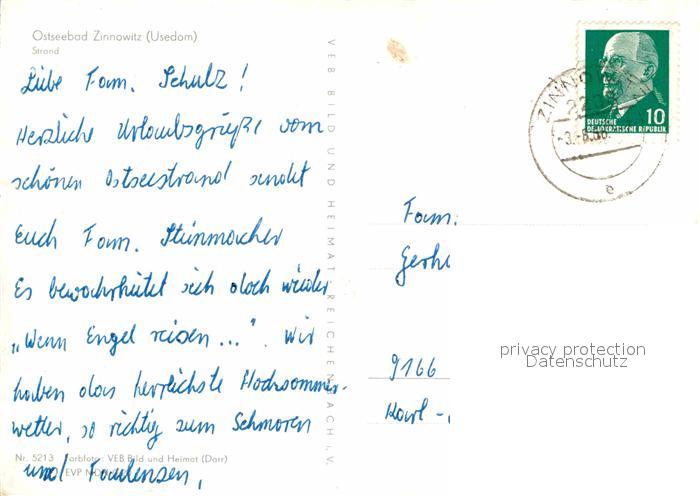 Ostseebad Zinnowitz (Usedom)
Strand
Liebe Fam. Schulz!
Herzliche Urlaubsgrüße vom
schönen Ostseestrand sendet
Euch Fam. Steinmacher
Es bewahrheitet sich doch wieder
„Wenn Engel reisen..." Wir
haben das herrlichste Hochsommer-
wetter, so richtig zum Schmoren
und Faulensen,
Nr. 5213 Farbfoto: VEB Bild und Heimat (Darr)
EVP
VEB BILD UND HEIMAT REICHENBACH I. V.
ZINNOWITZ
DEUTSCHE
DEMOKRATISCHE REPUBLIK
10
e
Fam.
Gerh
9166
Karl-
privacy protection
Datenschutz